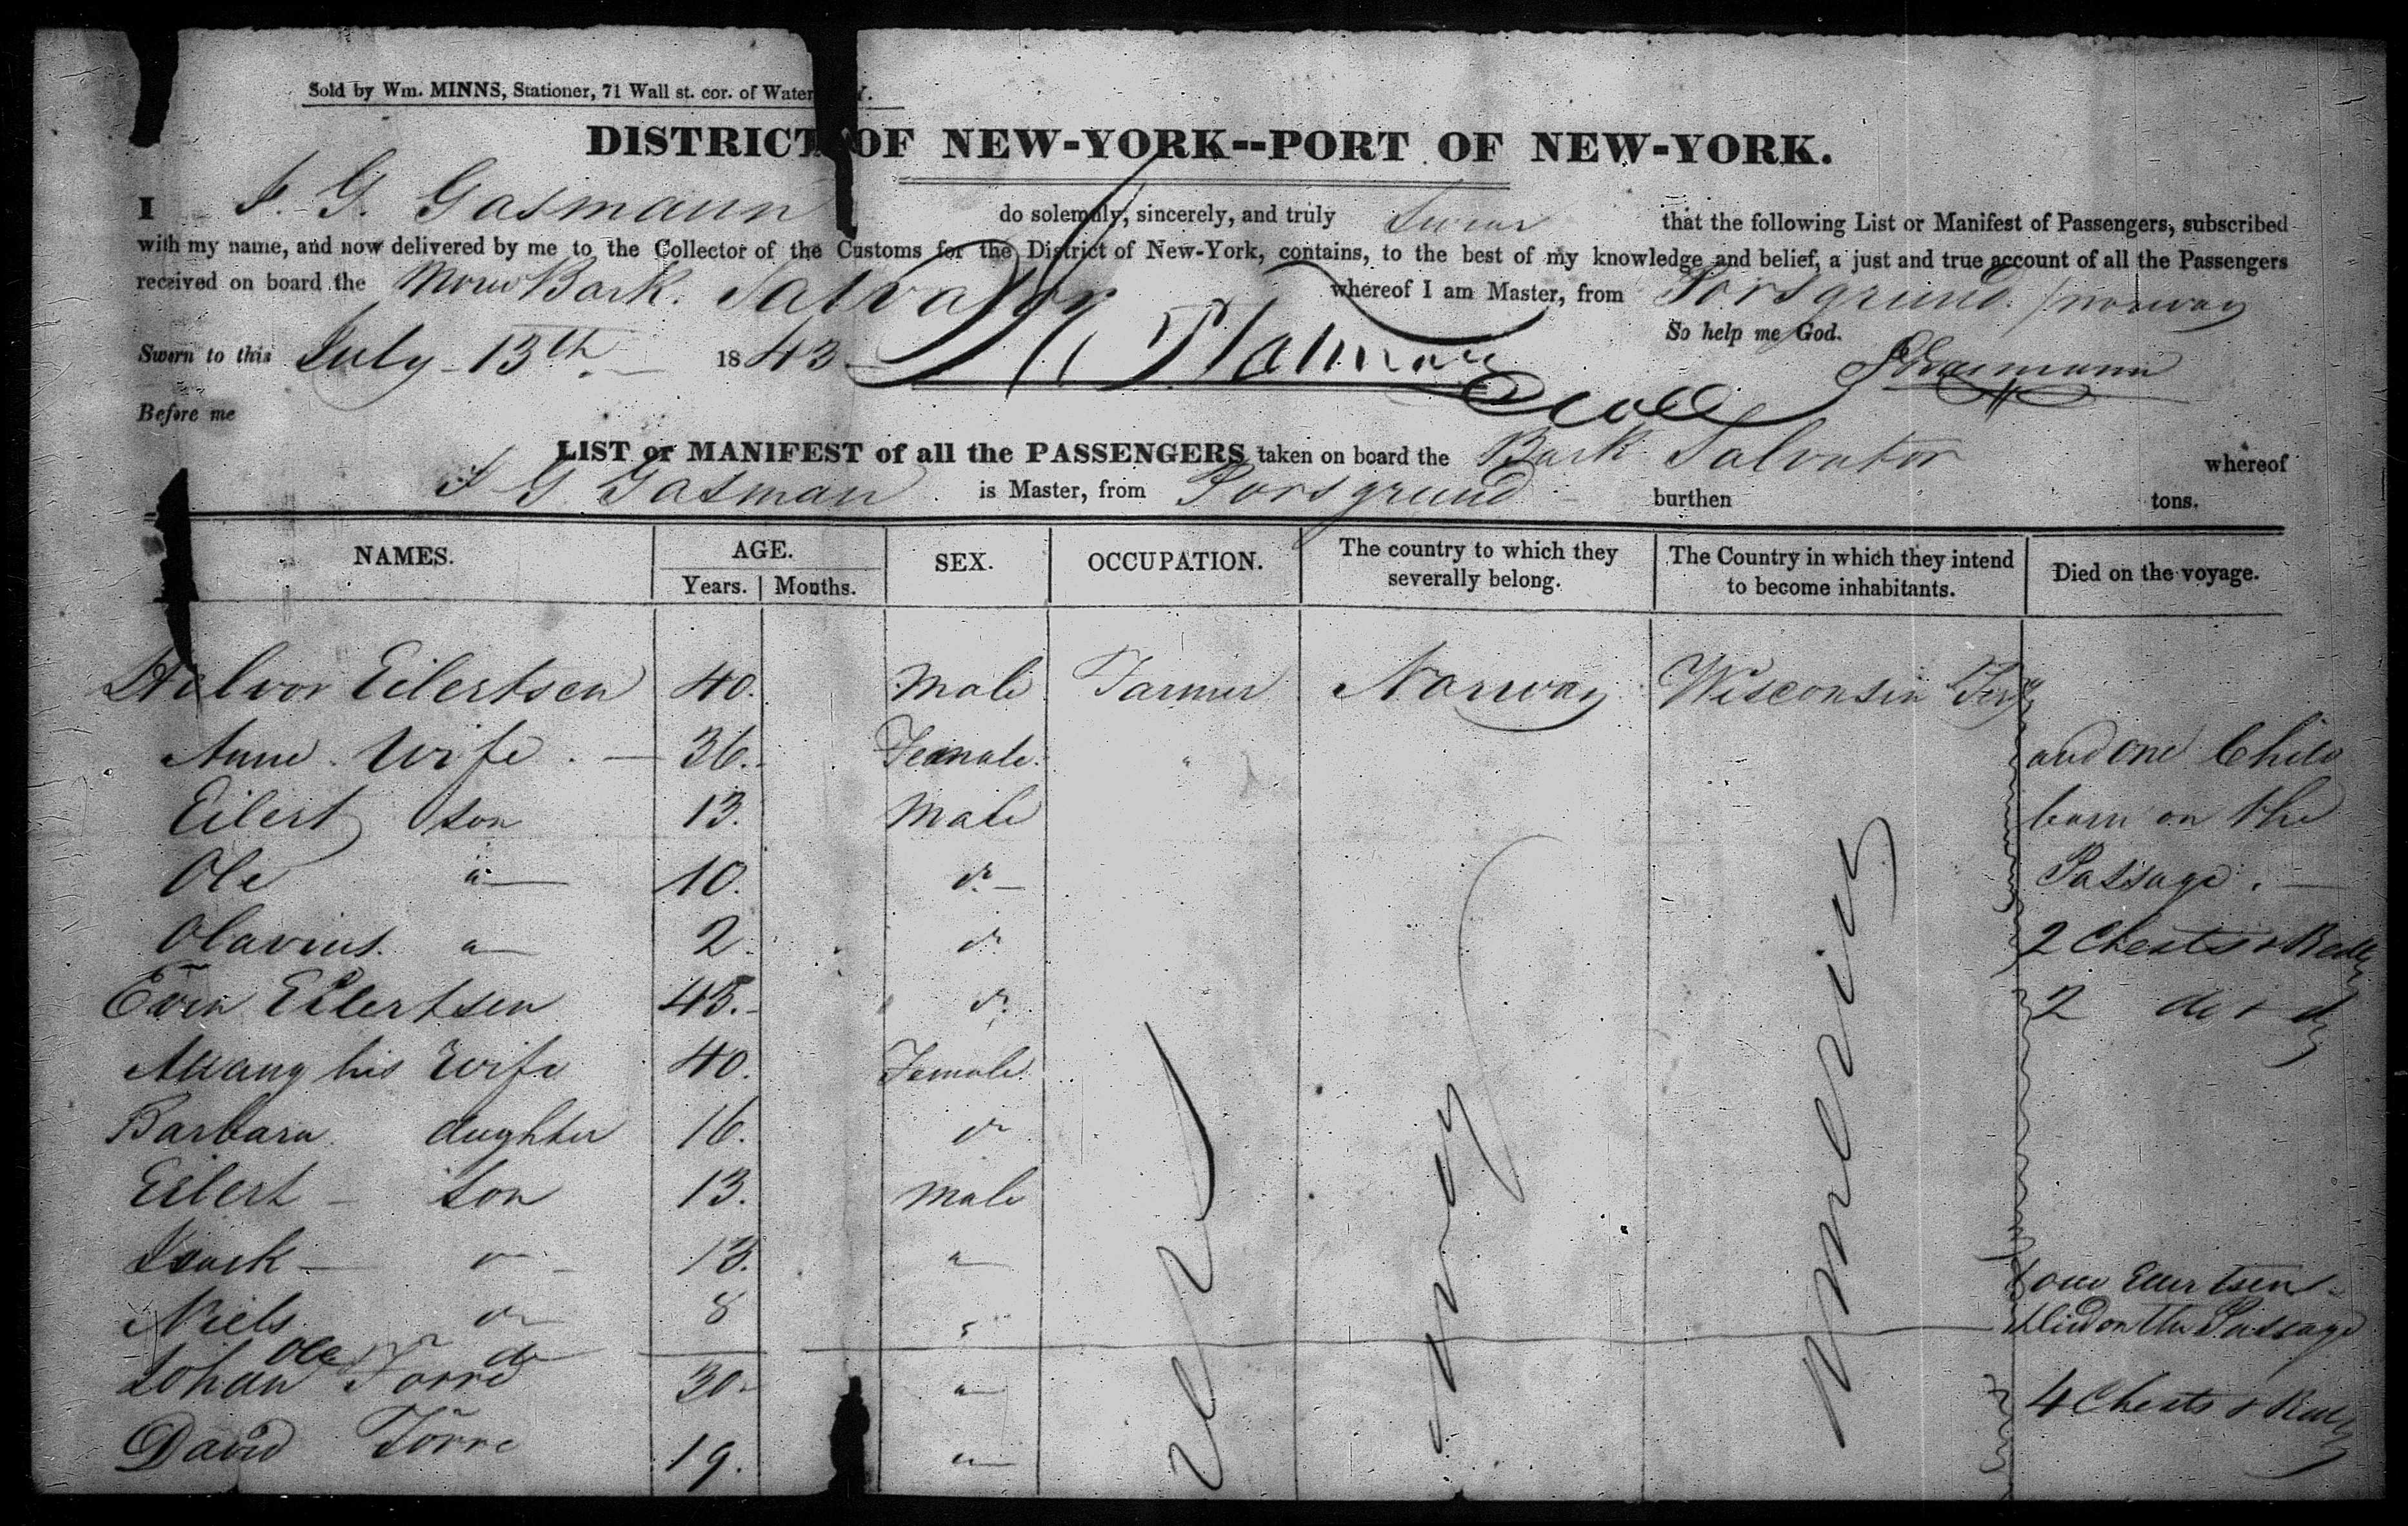 Sold by Wm. MINNS, Stationer, 71 Wall st. cor. of Water Y.
DISTRICT OF NEW-YORK--PORT OF NEW-YORK.
I J. G. Gasmann do solemnly, sincerely, and truly swear that the following List or Manifest of Passengers, subscribed
with my name, and now delivered by me to the Collector of the Customs for the District of New-York, contains, to the best of my knowledge and belief, a just and true account of all the Passengers
received on board the Bark. Salvator whereof I am Master, from Porsgrund / norway
So help me God.
Sworn to this July 13th 1843 JGasmann
Before me
LIST or MANIFEST of all the PASSENGERS taken on board the Bark Salvator whereof
J G Gasman is Master, from Porsgrund burthen tons.
NAMES. AGE. Years. Months. SEX. OCCUPATION. The country to which they severally belong. The Country in which they intend to become inhabitants. Died on the voyage.
Halvor Eilertsen 40. Male Farmer Norway Wisconsin Ter
Anne Wife. 36. Female. " and one Child
Eilert son 13. Male born on the
Ole " 10. do Passage.
Olavius. " 2 do 2 Chests &
Even Eilertsen 45. do 2 do &
his Wife 40. Female
Barbara daughter 16. do
Eilert son 13. Male
Isack do 13. "
Niels do 8 " Eilertsen
Ole do died on the Passage
Johan Torre 30. " 4 Chests &
David Törre 19. "
America